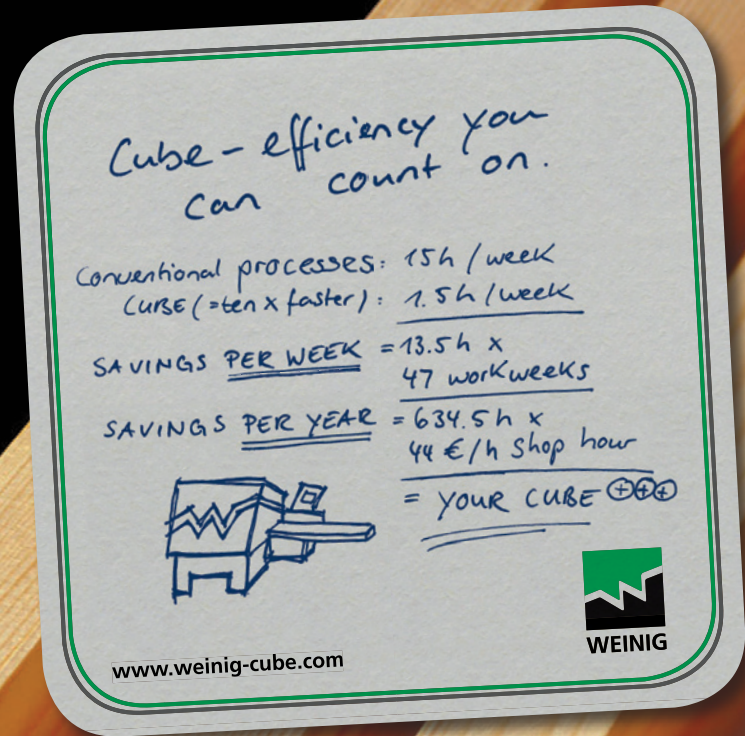 Cube - efficiency you
can count on.
Conventional processes: 15h / week
CUBE (=ten x faster): 1.5h / week
SAVINGS PER WEEK = 13.5h x
47 workweeks
SAVINGS PER YEAR = 634.5h x
44 €/h Shop hour
= YOUR CUBE ⊕⊕⊕
www.weinig-cube.com
WEINIG